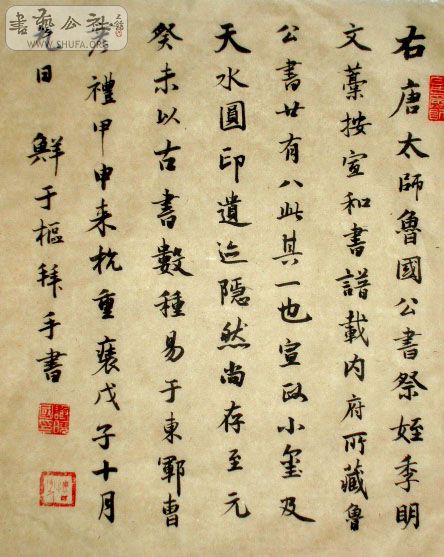 書藝公社
WWW.SHUFA.ORG
右唐太師魯國公書祭姪季明
文藁按宣和書譜載内府所藏魯
公書廿有八此其一也宣政小璽及
天水圓印遺迹隱然尚存至元
癸未以古書數種易于東鄆曹
彦禮甲申来杭重戊子十月
日 鮮于樞拜手書